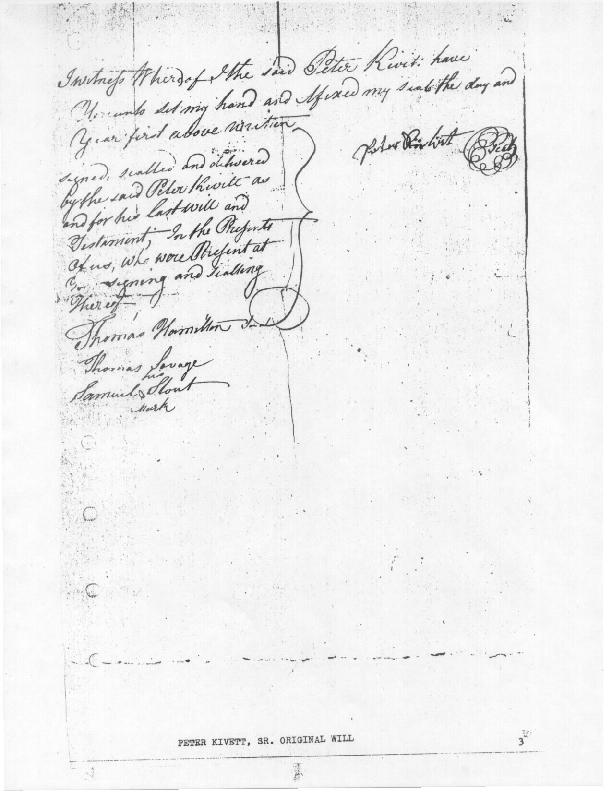 Iwitness Wherof I the said Peter Kivit: have
set my hand and Afixed my seal the day and
Year first above Writen
Peter Kivit Seal
signed, sealled and delivered
by the said Peter Kivitt as
and for his last will and
Testament, In the Presents
Of us, who were Present at
signing and sealling
Therof
Thomas Hamilton
Thomas Savage
his
Samuel Stout
mark
PETER KIVETT, SR. ORIGINAL WILL
3